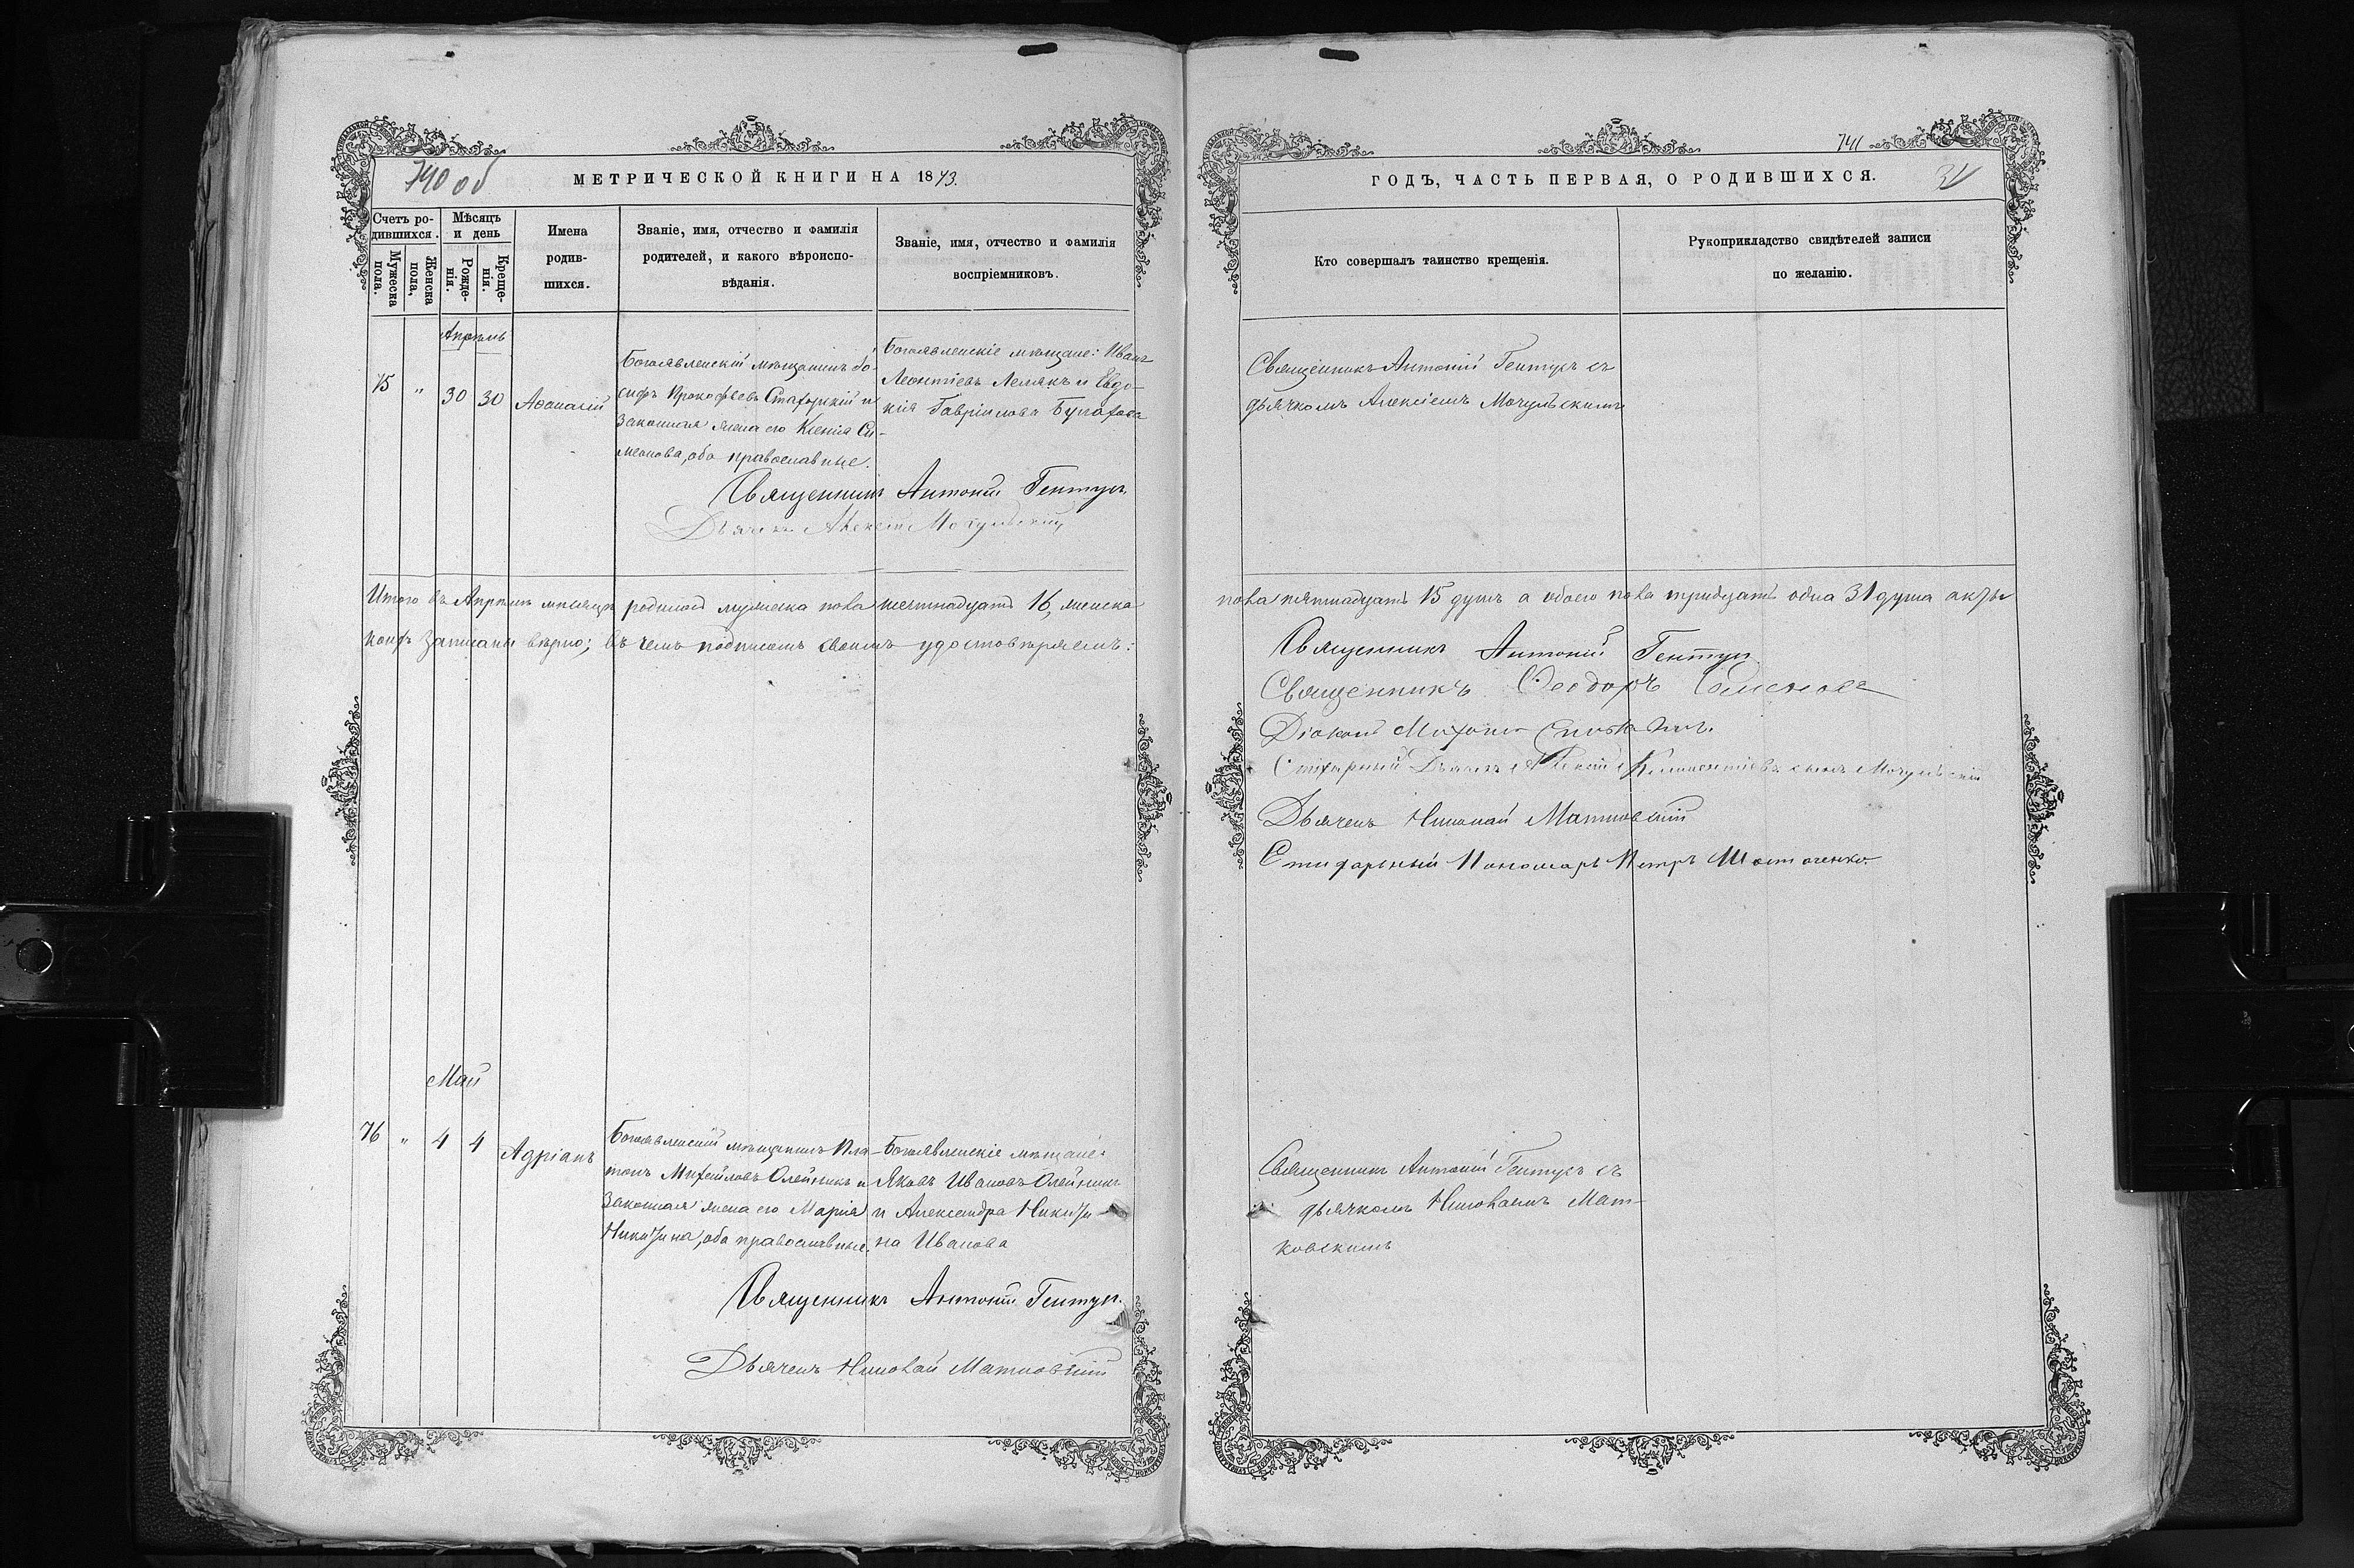 740 об
МЕТРИЧЕСКОЙ КНИГИ НА 1873.
Счетъ ро-
дившихся.
Мужеска
пола.
Женска
пола,
Мѣсяцъ
и день
Рожде-
нія.
Креще-
нія.
Имена
родив-
шихся.
Званіе, имя, отчество и фамилія
родителей, и какого вѣроиспо-
вѣданія.
Званіе, имя, отчество и фамилія
воспріемниковъ.
Апрѣль
75 " 30 30 Аѳанасій
Богоявленскій мѣщанинъ Іо-
сифъ Прокофьевъ и
законная жена его Ксенія Си-
меонова, оба православные.
Богоявленскіе мѣщане: Иванъ
Леонтіевъ Лемякъ и Евдо-
кія Гавріилова
Священникъ Антоній Гентухъ
Дьячекъ Алексій Мочульскій
Итого въ Апрѣлѣ мѣсяцѣ родилось мужеска пола шестнадцать 16, женска
записаны вѣрно; въ чемъ подписомъ своимъ удостовѣряемъ:
Май
76 " 4 4 Адріанъ
Богоявленскій мѣщанинъ Пла-
тонъ Михайловъ Олейникъ и
законная жена его Марія
Никитина, оба православные.
Богоявленскіе мѣщане:
Яковъ Ивановъ Олейникъ
и Александра Никити-
на Иванова
Священникъ Антоній Гентухъ.
Дьячекъ Николай Матковскій
741
31
ГОДЪ, ЧАСТЬ ПЕРВАЯ, О РОДИВШИХСЯ.
Кто совершалъ таинство крещенія.
Рукоприкладство свидѣтелей записи
по желанію.
Священникъ Антоній Гентухъ съ
дьячкомъ Алексіемъ Мочульскимъ
пола пятнадцать 15 душъ а обоего пола тридцать одна 31 душа
Священникъ Антоній Гентухъ
Священникъ Ѳеодоръ
Діаконъ
Стихарный Дьячекъ Алексій сынъ Мочульскій
Дьячекъ Николай Матковскій
Стихарный Пономарь Петръ
Священникъ Антоній Гентухъ съ
дьячкомъ Николаемъ Мат-
ковскимъ